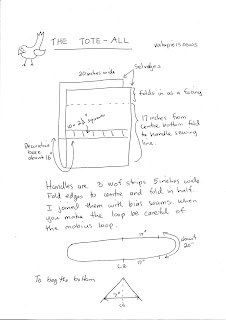 THE TOTE-ALL
20 inches wide
Selvedges
folds in as a facing
17 inches from
centre bottom fold
to handle sewing
line.
squares
Decorative
base
about 16"
Handles are 3 WOF strips 5 inches wide
Fold edges to centre and fold in half.
I joined them with bias seams. When
you make the loop be careful of
the mobius loop.
17"
about
20"
CB
17"
To bag the bottom
7"
CB